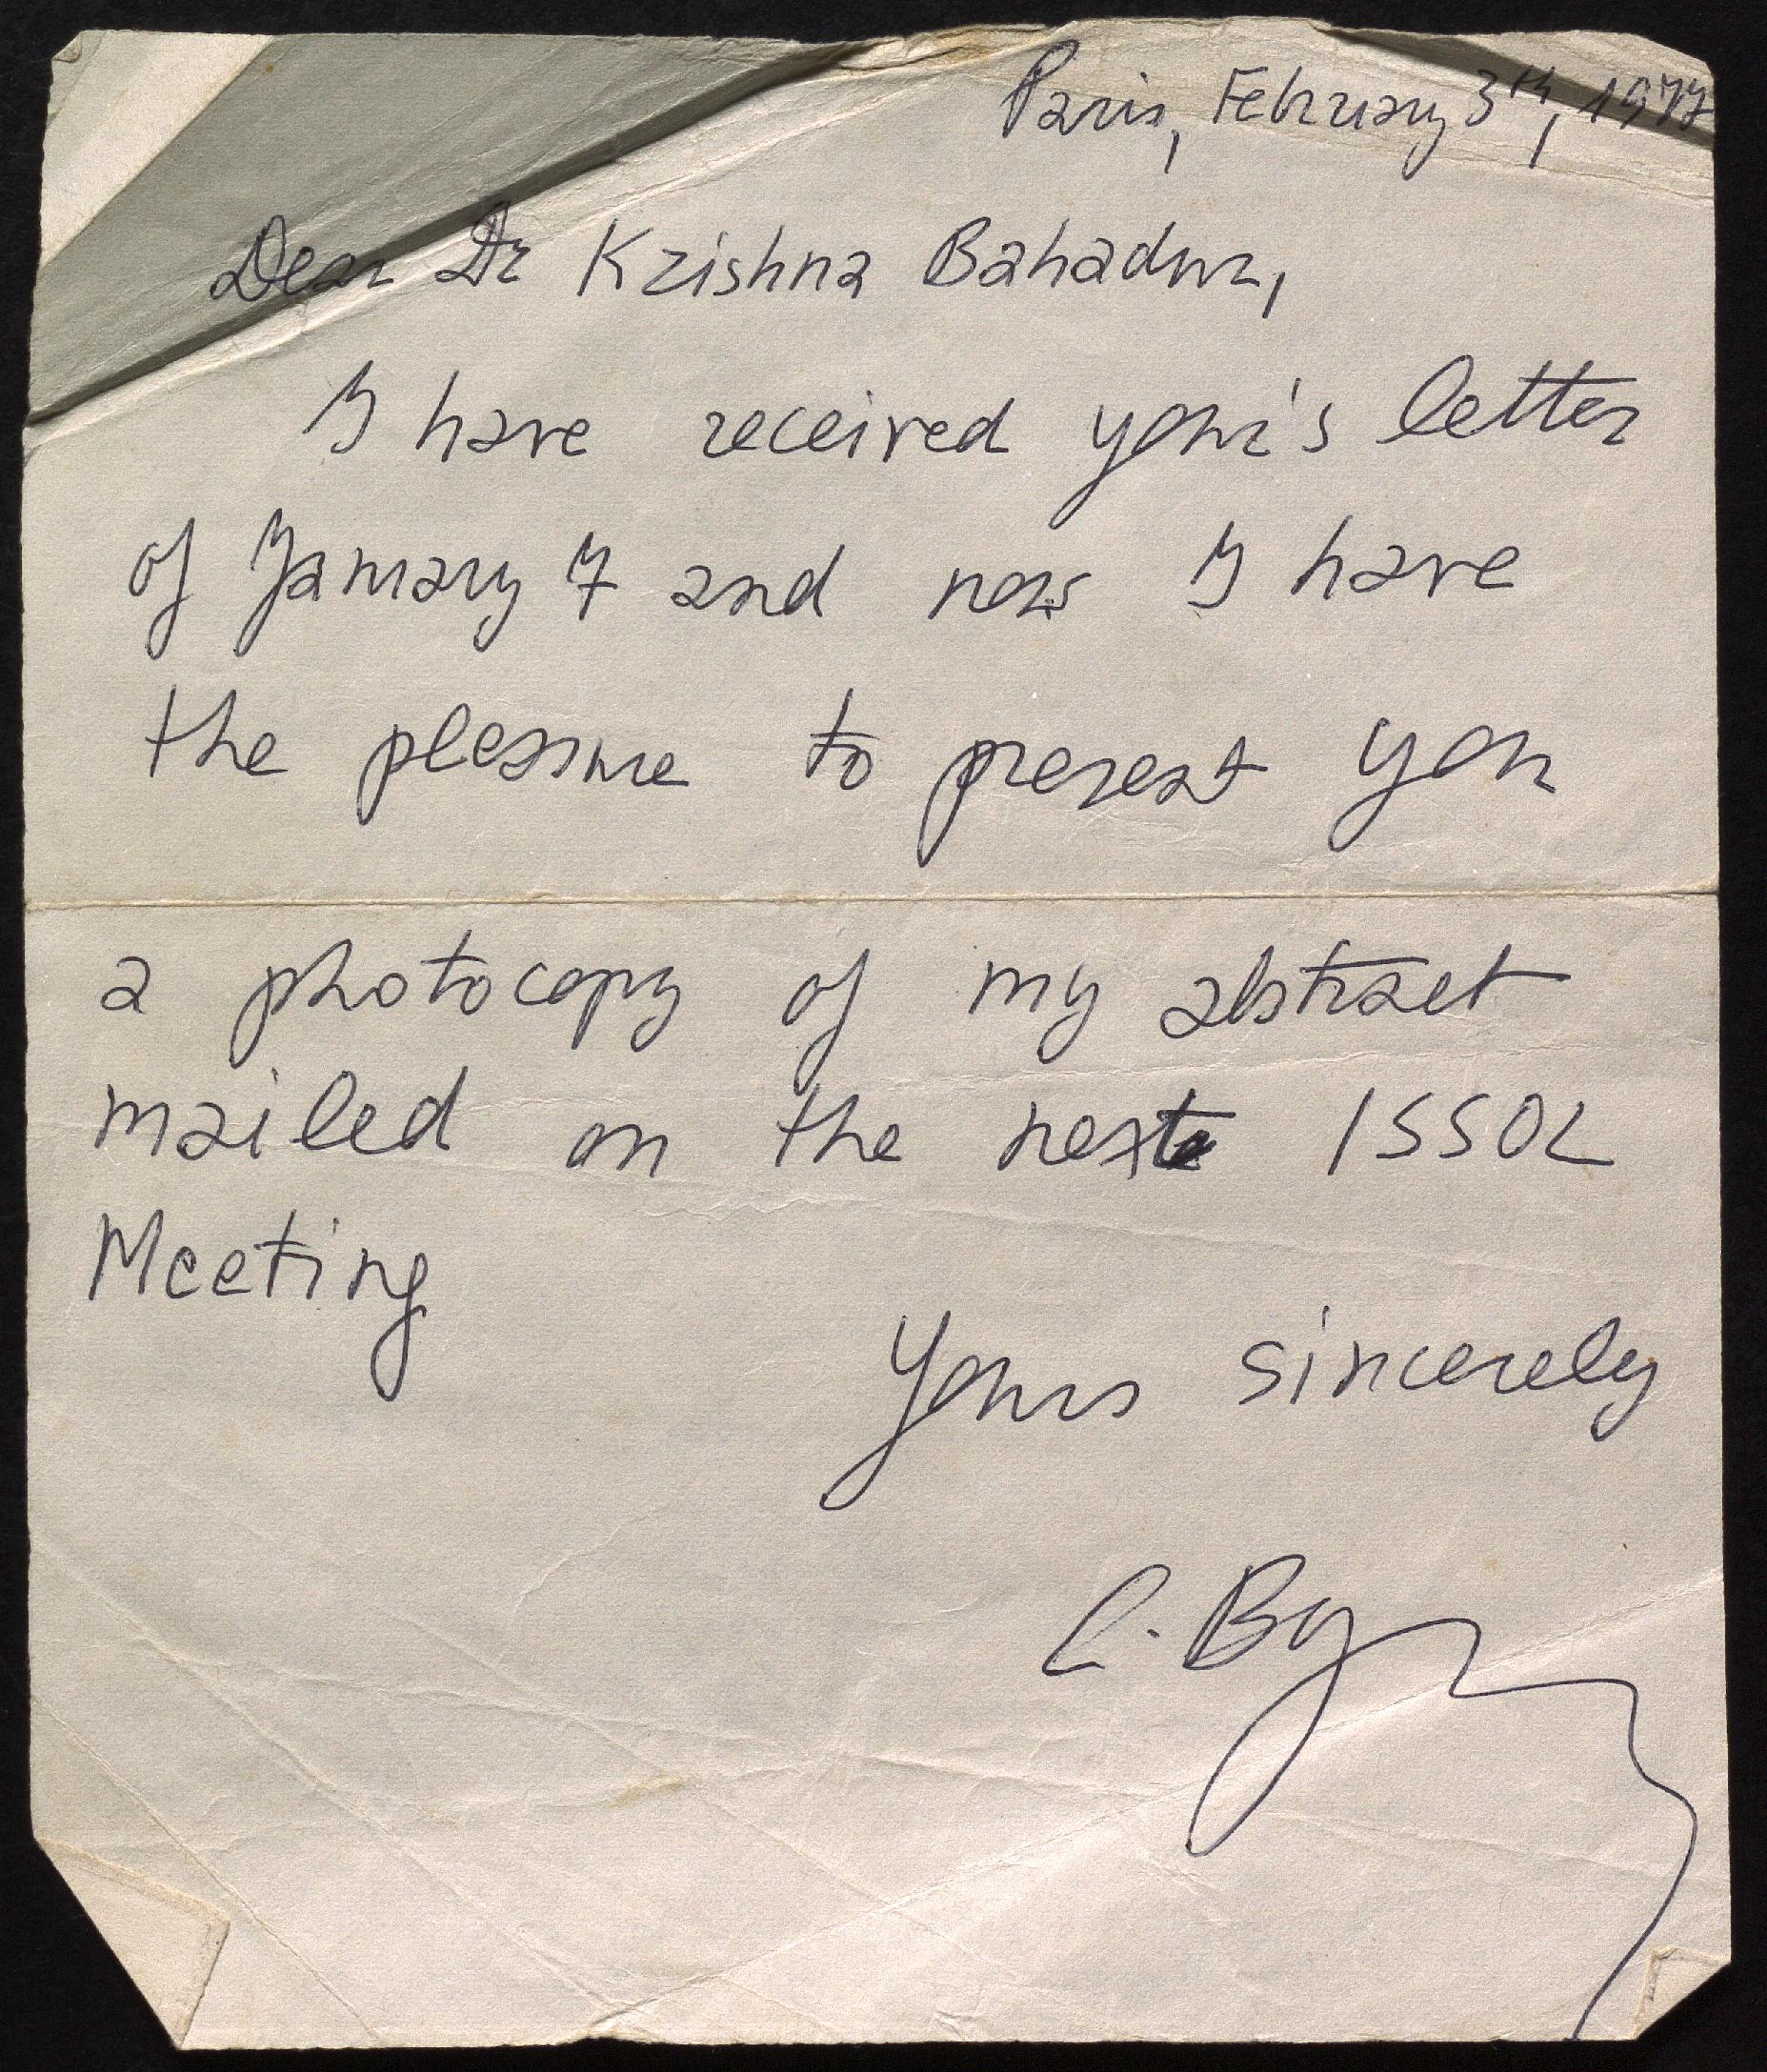 Paris, February 3th, 1977
Dear Dr Krishna Bahadur,
I have received your's letter
of January 7 and now I have
the pleasure to present you
a photocopy of my abstract
mailed on the next ISSOL
Meeting
Yours sincerely
C. By